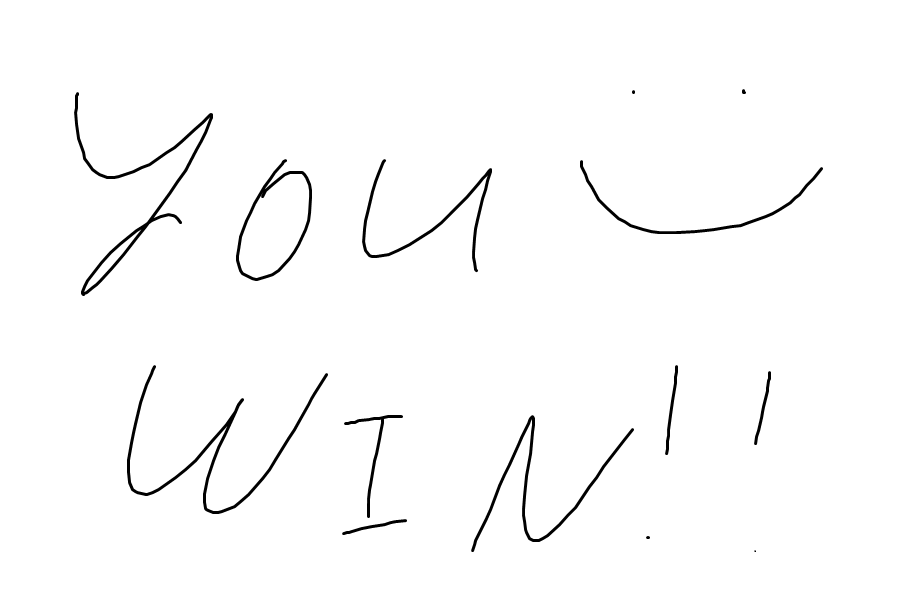 you
WIN!!